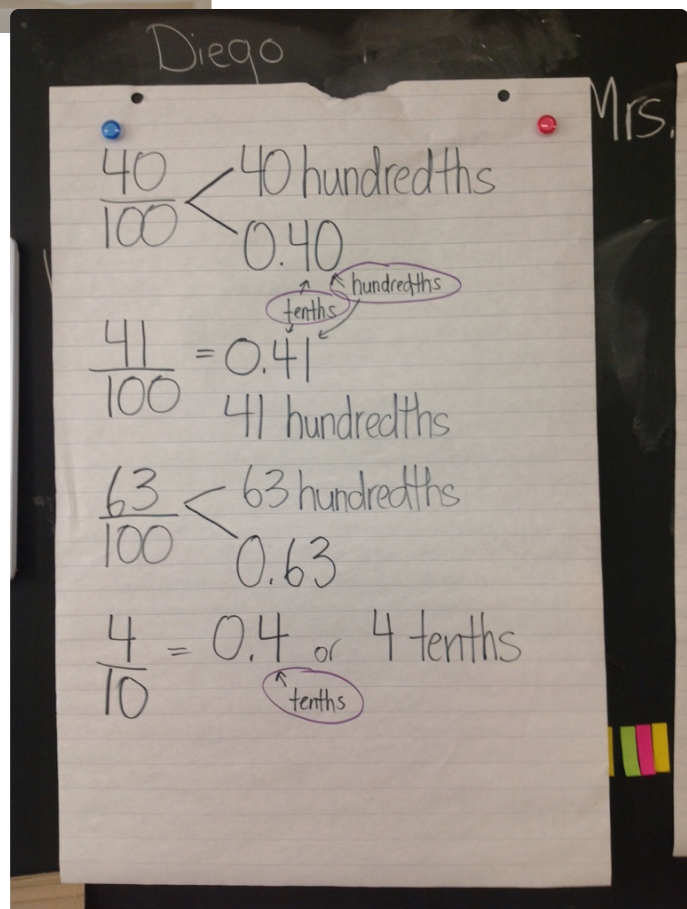 Diego
Mrs.
40/100 < 40 hundredths
0.40
hundredths
tenths
41/100 = 0.41
41 hundredths
63/100 < 63 hundredths
0.63
4/10 = 0.4 or 4 tenths
tenths